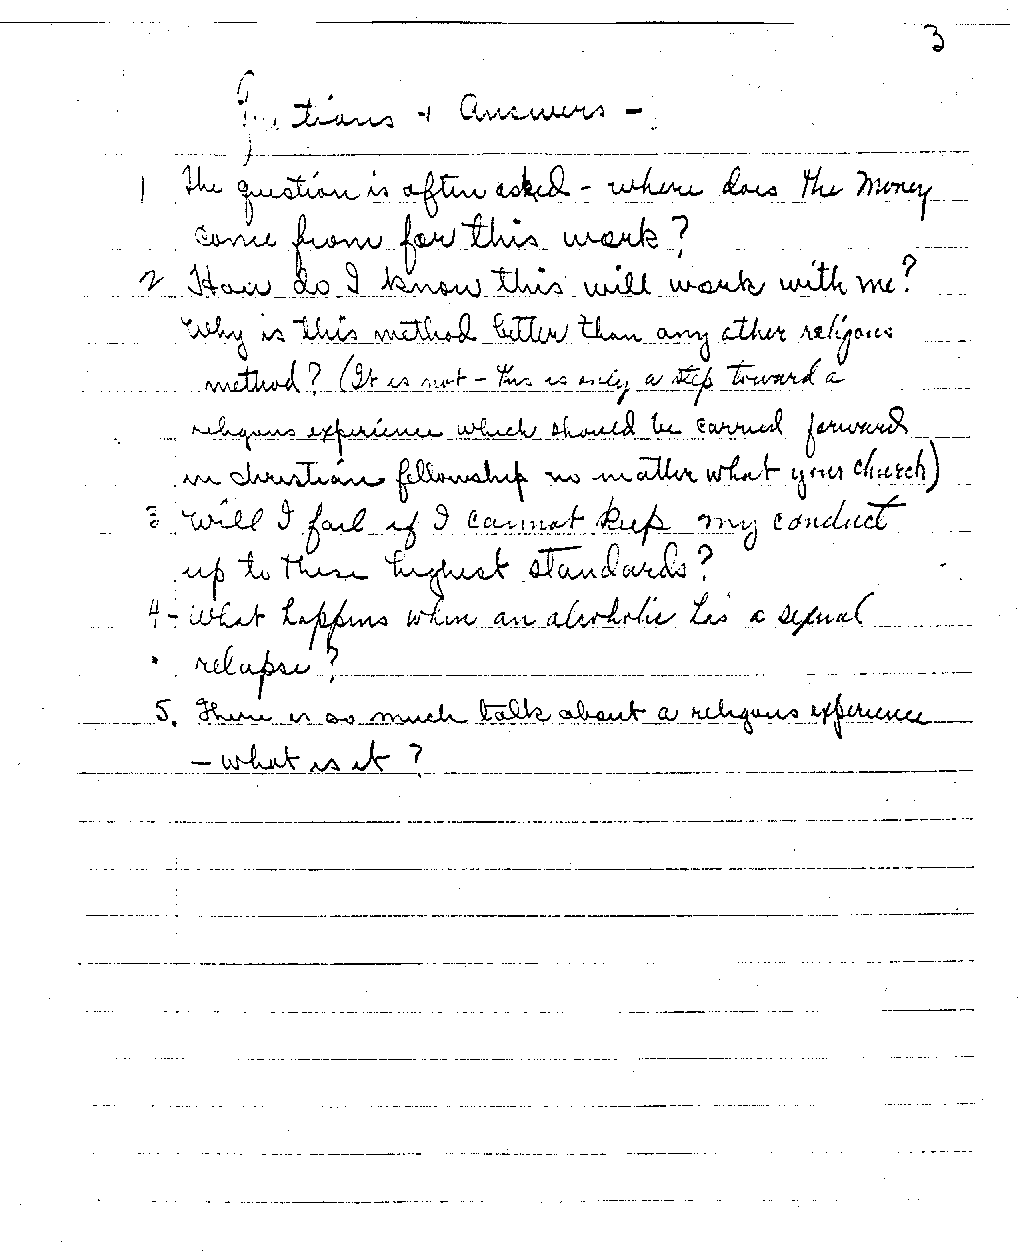 3
Questions + Answers -
1 The question is often asked - where does the money
come from for this work?
2 How do I know this will work with me?
Why is this method better than any other religous
method? (It is not - this is only a step toward a
religous experience which should be carried forward
in christian fellowship no matter what your church)
3 Will I fail if I cannot keep my conduct
up to these highest standards?
4 - What happens when an alcoholic has a sexual
relapse?
5. There is so much talk about a religous experience
- what is it?